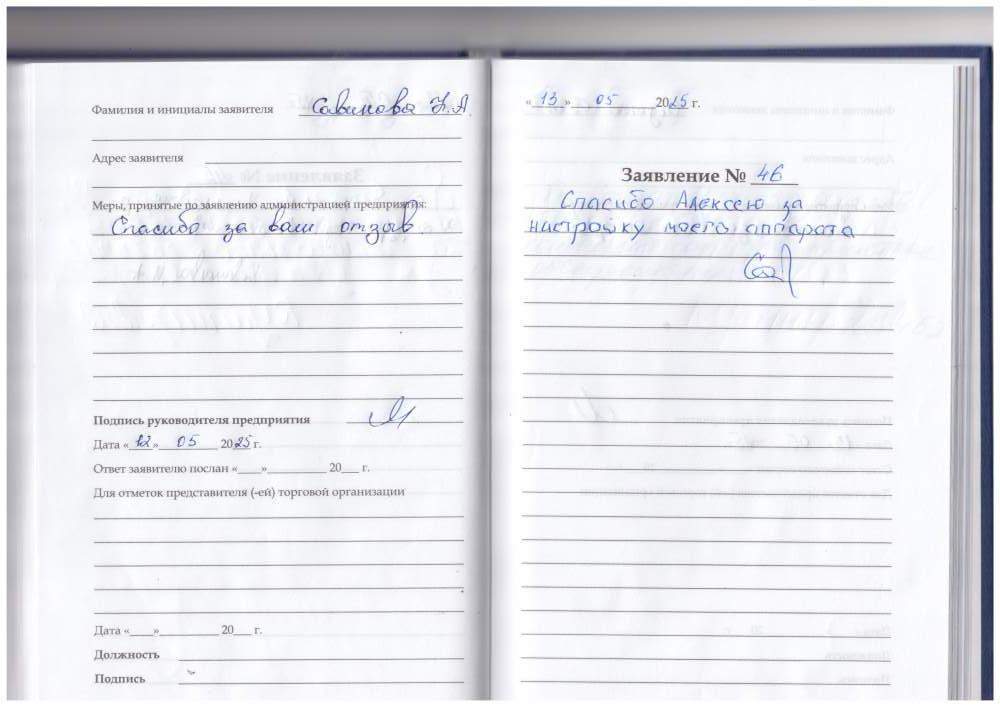 Фамилия и инициалы заявителя Савинова Н.А.
Адрес заявителя
Меры, принятые по заявлению администрацией предприятия:
Спасибо за ваш отзыв
Подпись руководителя предприятия
Дата «12» 05 2025 г.
Ответ заявителю послан «____»__________ 20___ г.
Для отметок представителя (-ей) торговой организации
Дата «____»__________ 20___ г.
Должность
Подпись
«13» 05 2025 г.
Заявление № 46
Спасибо Алексею за
настройку моего аппарата